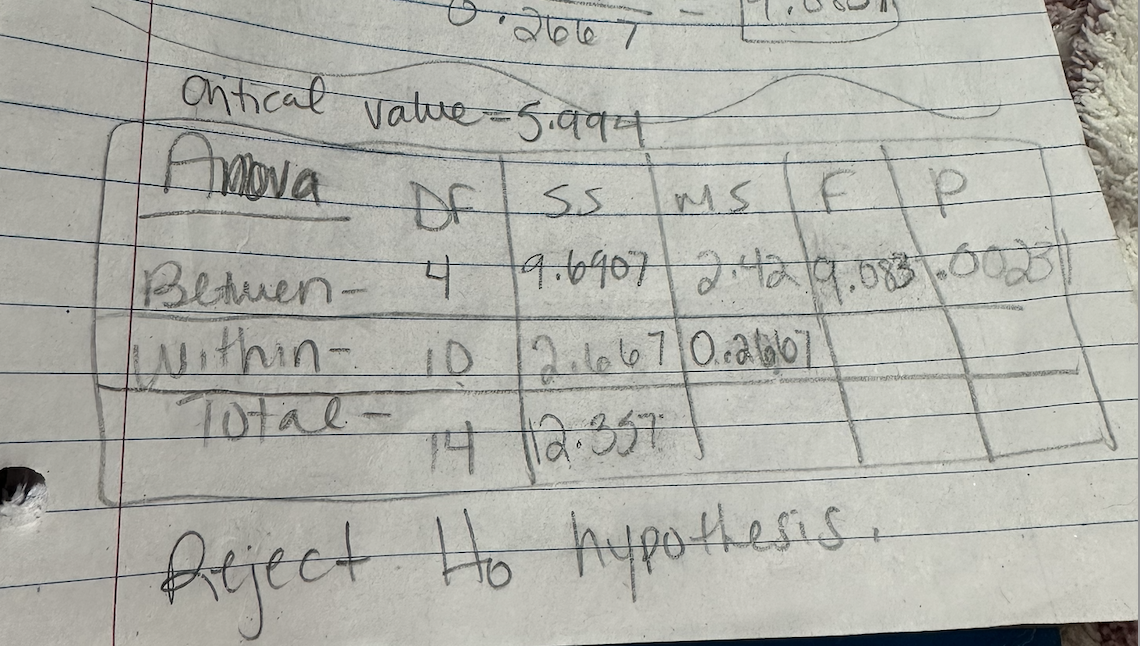 0.2667 =
Critical value = 5.994
Anova DF SS MS F P
Between - 4 9.6907 2.42 9.083 .0023
Within - 10 2.667 0.2667
Total - 14 12.357
Reject Ho hypothesis.